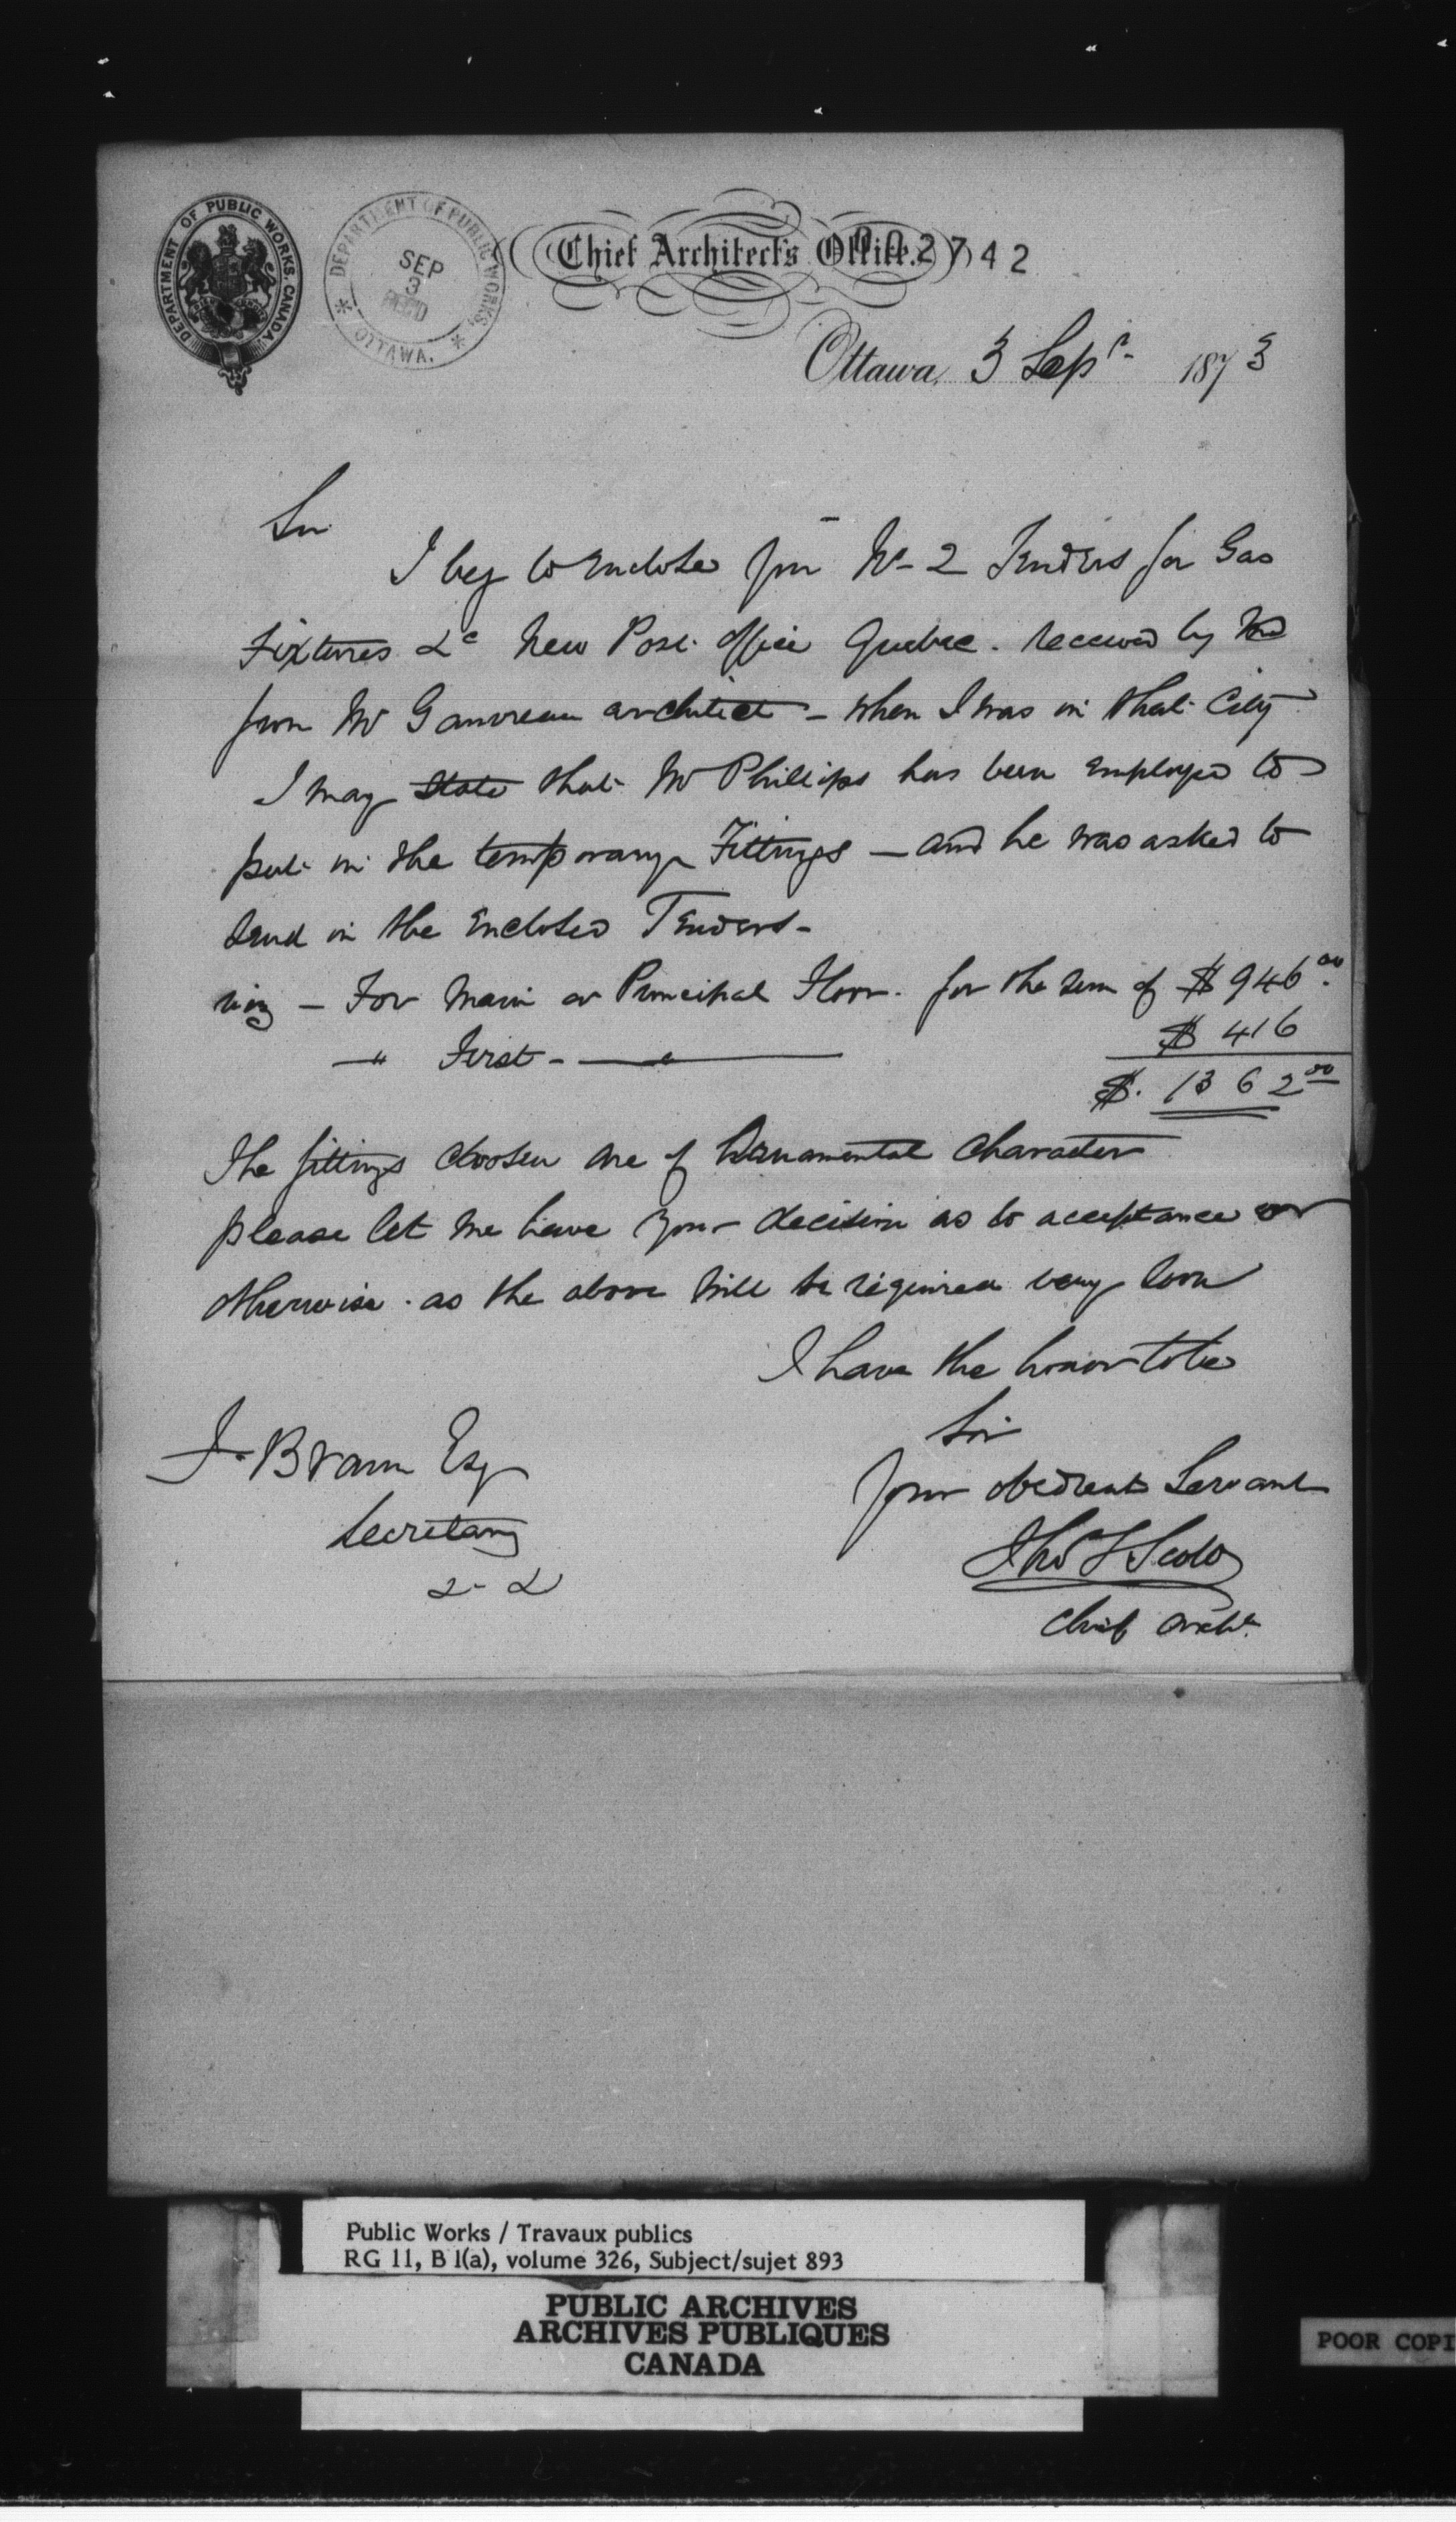 DEPARTMENT OF PUBLIC WORKS, CANADA.
DEPARTMENT OF PUBLIC WORKS,
SEP
3
REC'D
OTTAWA.
Chief Architect's Office.
2742
Ottawa, 3 Sept. 1873
Sir
I beg to enclose you 2 Tenders for Gas
Fixtures &c New Post office Quebec. received by me
from Mr Gauvreau architect - when I was in that City
I may state that Mr Phillips has been employed to
put in the temporary Fittings - and he was asked to
send in the enclosed Tenders -
viz - For Main or Principal Floor. for the sum of $946.00
" First - " $416
$. 1362.00
The fittings chosen are of Ornamental character
please let me have your decision as to acceptance or
otherwise. as the above will be required very soon
I have the honor to be
Sir
your obedient Servant
Thos S Scott
Chief Archt.
F. Braun Esq
Secretary
Public Works / Travaux publics
RG 11, B 1(a), volume 326, Subject/sujet 893
PUBLIC ARCHIVES
ARCHIVES PUBLIQUES
CANADA
POOR COPI